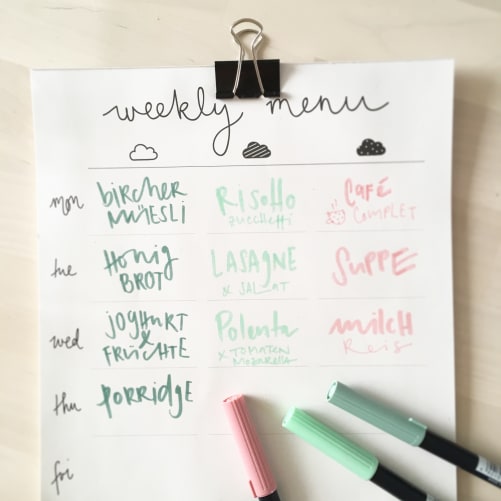 weekly menu
mon
bircher
müesli
Risotto
zucchetti
Café
complet
tue
Honig
Brot
Lasagne
& Salat
Suppe
wed
Joghurt
&
Früchte
Polenta
& Tomaten
Mozarella
Milch
Reis
thu
Porridge
fri